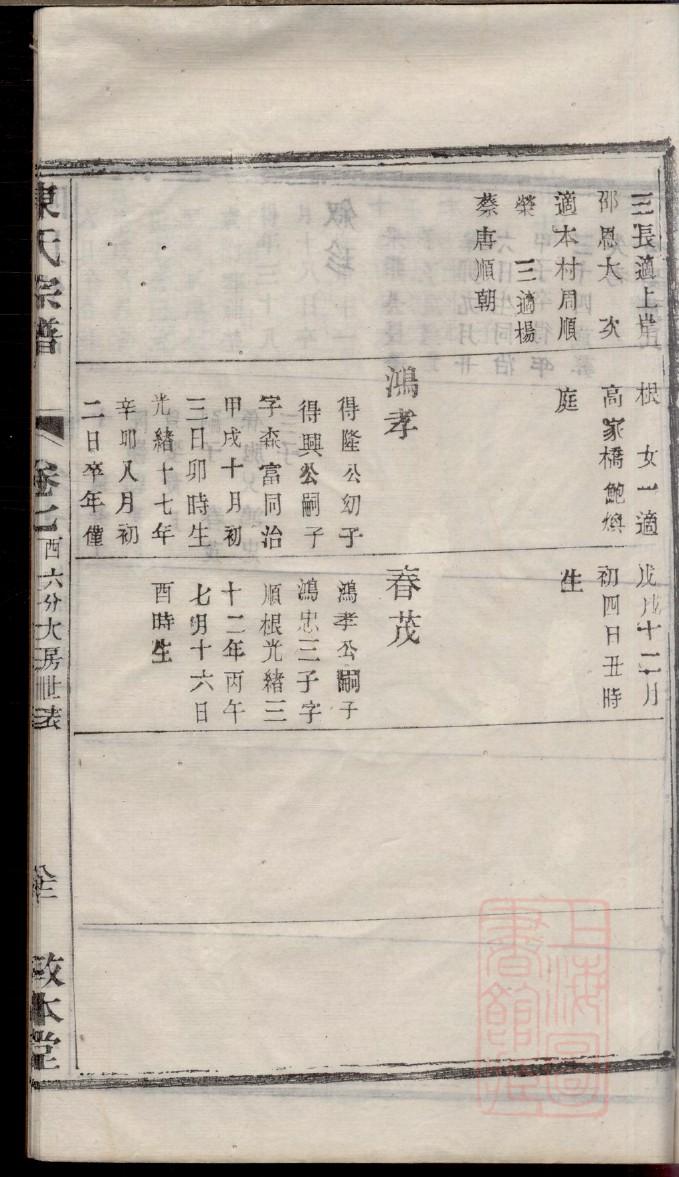 三長適上岸
邵恩大　次
適本村周順
榮　三適楊
蔡唐順朝
根　女一適
高家橋鮑煥
庭
鴻孝
得隆公幼子
得興公嗣子
字森富同治
甲戌十月初
三日卯時生
光緒十七年
辛卯八月初
二日卒年僅
戊戌十二月
初四日丑時
生
春茂
鴻孝公嗣子
鴻忠三子字
順根光緒三
十二年丙午
七月十六日
酉時生
陳氏宗譜
卷七
西六分大房世表
敦本堂
上海圖
書館藏